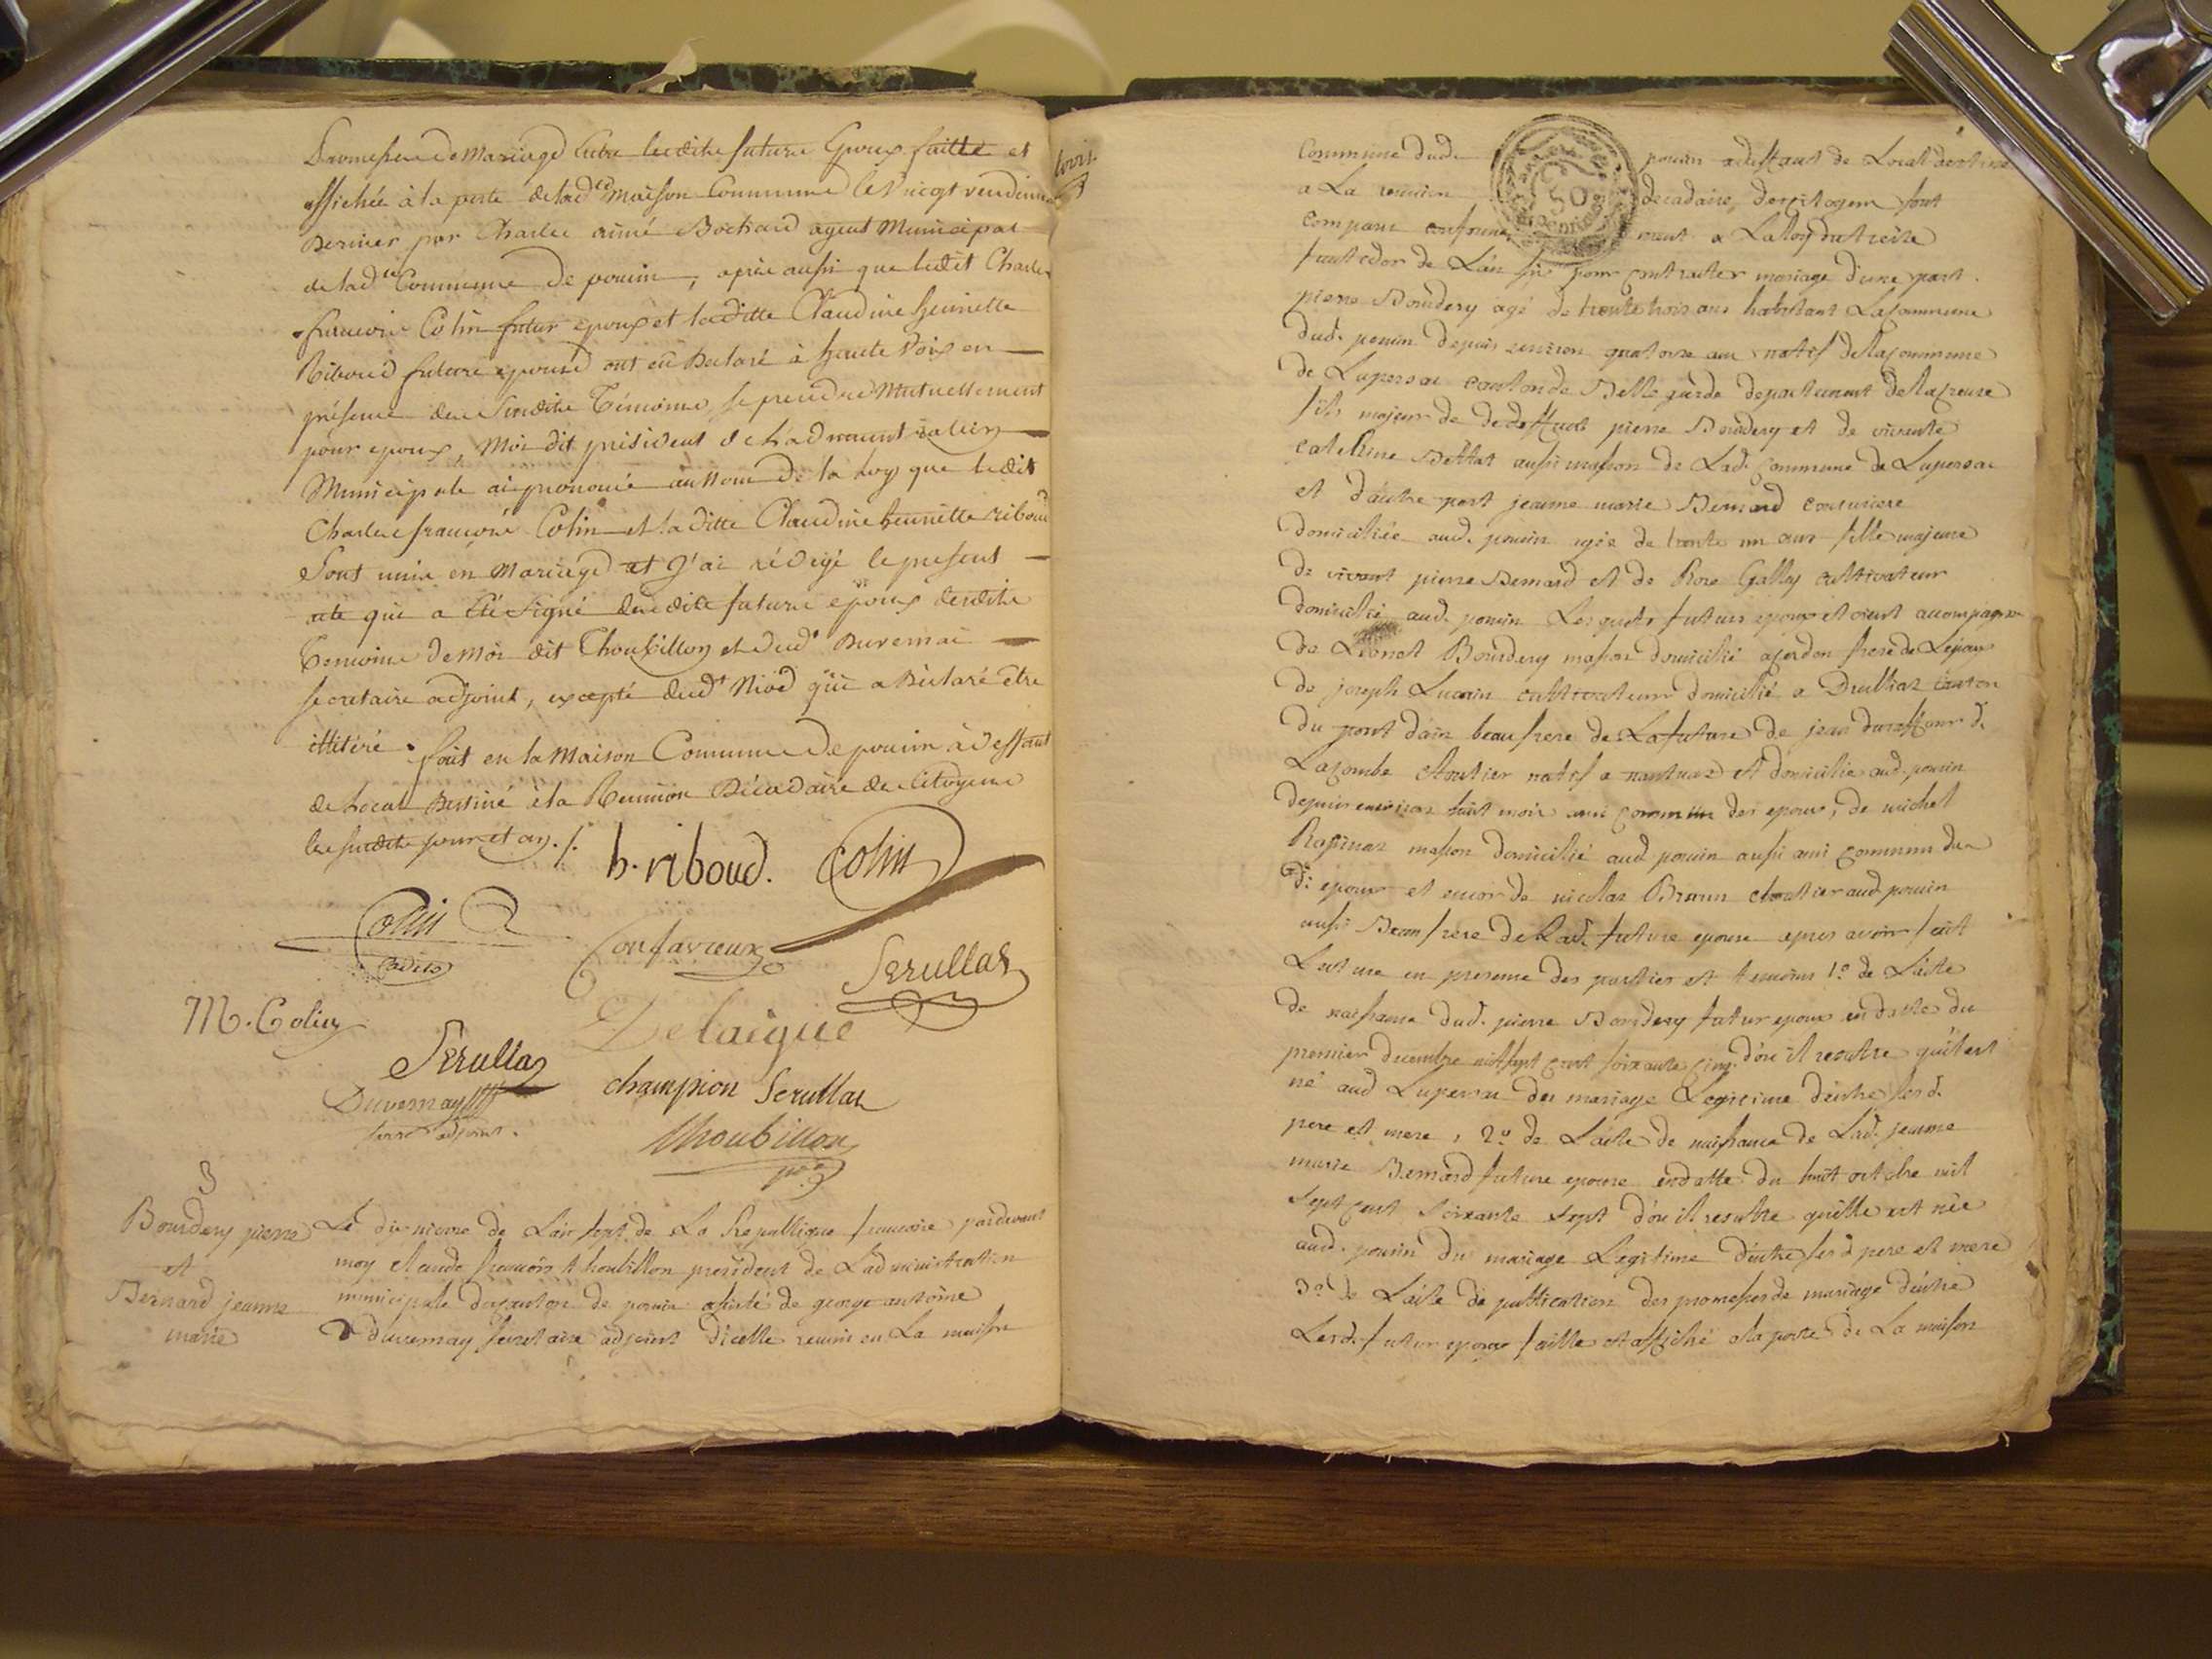 promesse de Mariage Entre lesdits futurs Epoux faitte et
affichée à la porte de lad.te maison Commune le vingt vendemiaire
dernier par Charles aimé Bochard agent Municipal
de lad.te Commune de poncin, après aussi que ledit Charles
francois Colin futur epoux et laditte Claudine henriette
Riboud future epouse ont eû declaré à haute voix en
présence des susdits Témoins, se prendre Mutuellement
pour epoux, Moi dit président de l'administration
Municipale ai prononcé au nom de la loy que ledit
Charles francois Colin et laditte Claudine henriette riboud
Sont unis en mariage et J'ai rédigé le present
acte qui a été signé desdits futurs epoux desdits
Temoins de moi dit Thoubillon et dud.t Duvernai
secretaire adjoint, excepté dud.t Niod qui a déclaré être
illitéré. fait en la Maison Commune de poncin à deffaut
de Local destiné à la Reunion Décadaire des Citoyens
les susdits jour et an ./.
trois
h. riboud. Colin
Colin
Confavreux
Serullas
M. Colin
Delaigue
Serullaz
champion Serullas
Duvernay
secre adjoint.
Thoubillon
pdt
3
Bourdery pierre
et
Bernard jeanne
marie
Le dix nivose de L'an sept de La Republique francoise pardevant
moy claude francois thoubillon president de L'administration
municipale du canton de poncin assisté de george antoine
duvernay secretaire adjoint d'icelle reunis en La maison
Commune dud. poncin a deffaut de Local destiné
a La reunion decadaire des citoyens sont
comparu conformement a La Loy du treize
fructidor de L'an six pour contracter mariage d'une part
pierre Bourdery agé de trente trois ans habitant La commune
dud. poncin depuis environ quatorze ans natif de la commune
de Lupersac canton de Bellegarde departement de la creuse
fils majeur de deffunt pierre Bourdery et de vivante
catherine aussi masson de Lad. commune de Lupersac
et d'autre part jeanne marie Bernard couturiere
domiciliée aud. poncin agée de trente un ans fille majeure
de vivant pierre Bernard et de Rose Galley cultivateur
domicilié aud. poncin Lesquels futurs epoux etoient accompagné
de Leonet Bourdery masson domicilié a jerdon frere de L'epoux
de joseph cultivateur domicilié a Druillat canton
du pont d'ain beau frere de La future de jean d.
Lacombe cloutier natif a nantuaz et domicilié aud. poncin
depuis environ huit mois ami commun des epoux, de michel
masson domicilié aud poncin aussi ami commun des
di epoux et encor de nicolas Brunn cloutier aud poncin
aussi Beau frere de Lad. future epouse apres avoir fait
Lecture en presence des parties et temoins 1.o de L'acte
de naissance dud. pierre Bourdery futur epoux en datte du
premier decembre mil sept cent soixante cinq d'ou il resulte qu'il est
né aud Lupersac du mariage Legitime d'entre sesd.
pere et mere, 2.o de L'acte de naissance de Lad. jeanne
marie Bernard future epouse en datte du huit octobre mil
sept cent soixante sept d'ou il resulte qu'elle est née
aud. poncin du mariage Legitime d'entre sesd pere et mere
3.o de L'acte de publication des promesses de mariage d'entre
Lesd. futur epoux faitte et affiché a la porte de La maison